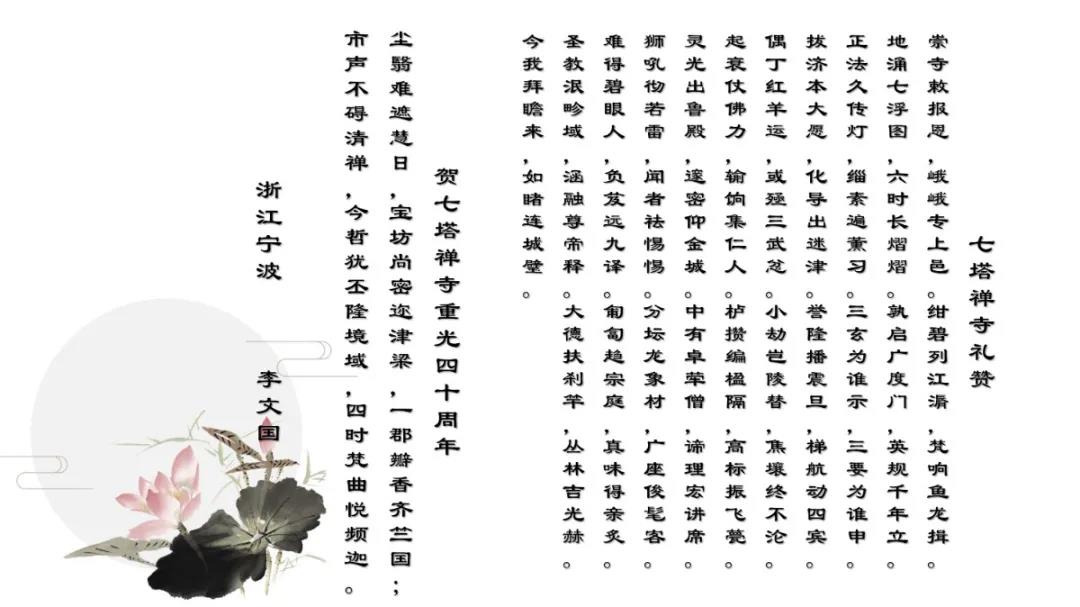 七塔禅寺礼赞
崇寺敕报恩,峨峨专上邑。绀碧列江漘,梵响鱼龙揖。
地涌七浮图,六时长熠熠。孰启广度门,英规千年立。
正法久传灯,缁素遍薰习。三玄为谁示,三要为谁申。
拔济本大愿,化导出迷津。誉隆播震旦,梯航动四宾。
偶丁红羊运,或殛三武忿。小劫岂陵替,焦壤终不沦。
起衰仗佛力,输饷集仁人。栌攒编楹隔,高标振飞甍。
灵光出鲁殿,邃密仰金城。中有卓荦僧,谛理宏讲席。
狮吼彻若雷,闻者祛惕惕。分坛龙象材,广座俊髦客。
难得碧眼人,负笈远九译。匍匐趋宗庭,真味得亲炙。
圣教泯畛域,涵融尊帝释。大德扶刹竿,丛林吉光赫。
今我拜瞻来,如睹连城璧。
贺七塔禅寺重光四十周年
尘翳难遮慧日,宝坊尚密迩津梁,一郡瓣香齐竺国;
市声不碍清禅,今哲犹丕隆境域,四时梵曲悦频迦。
浙江宁波 李文国